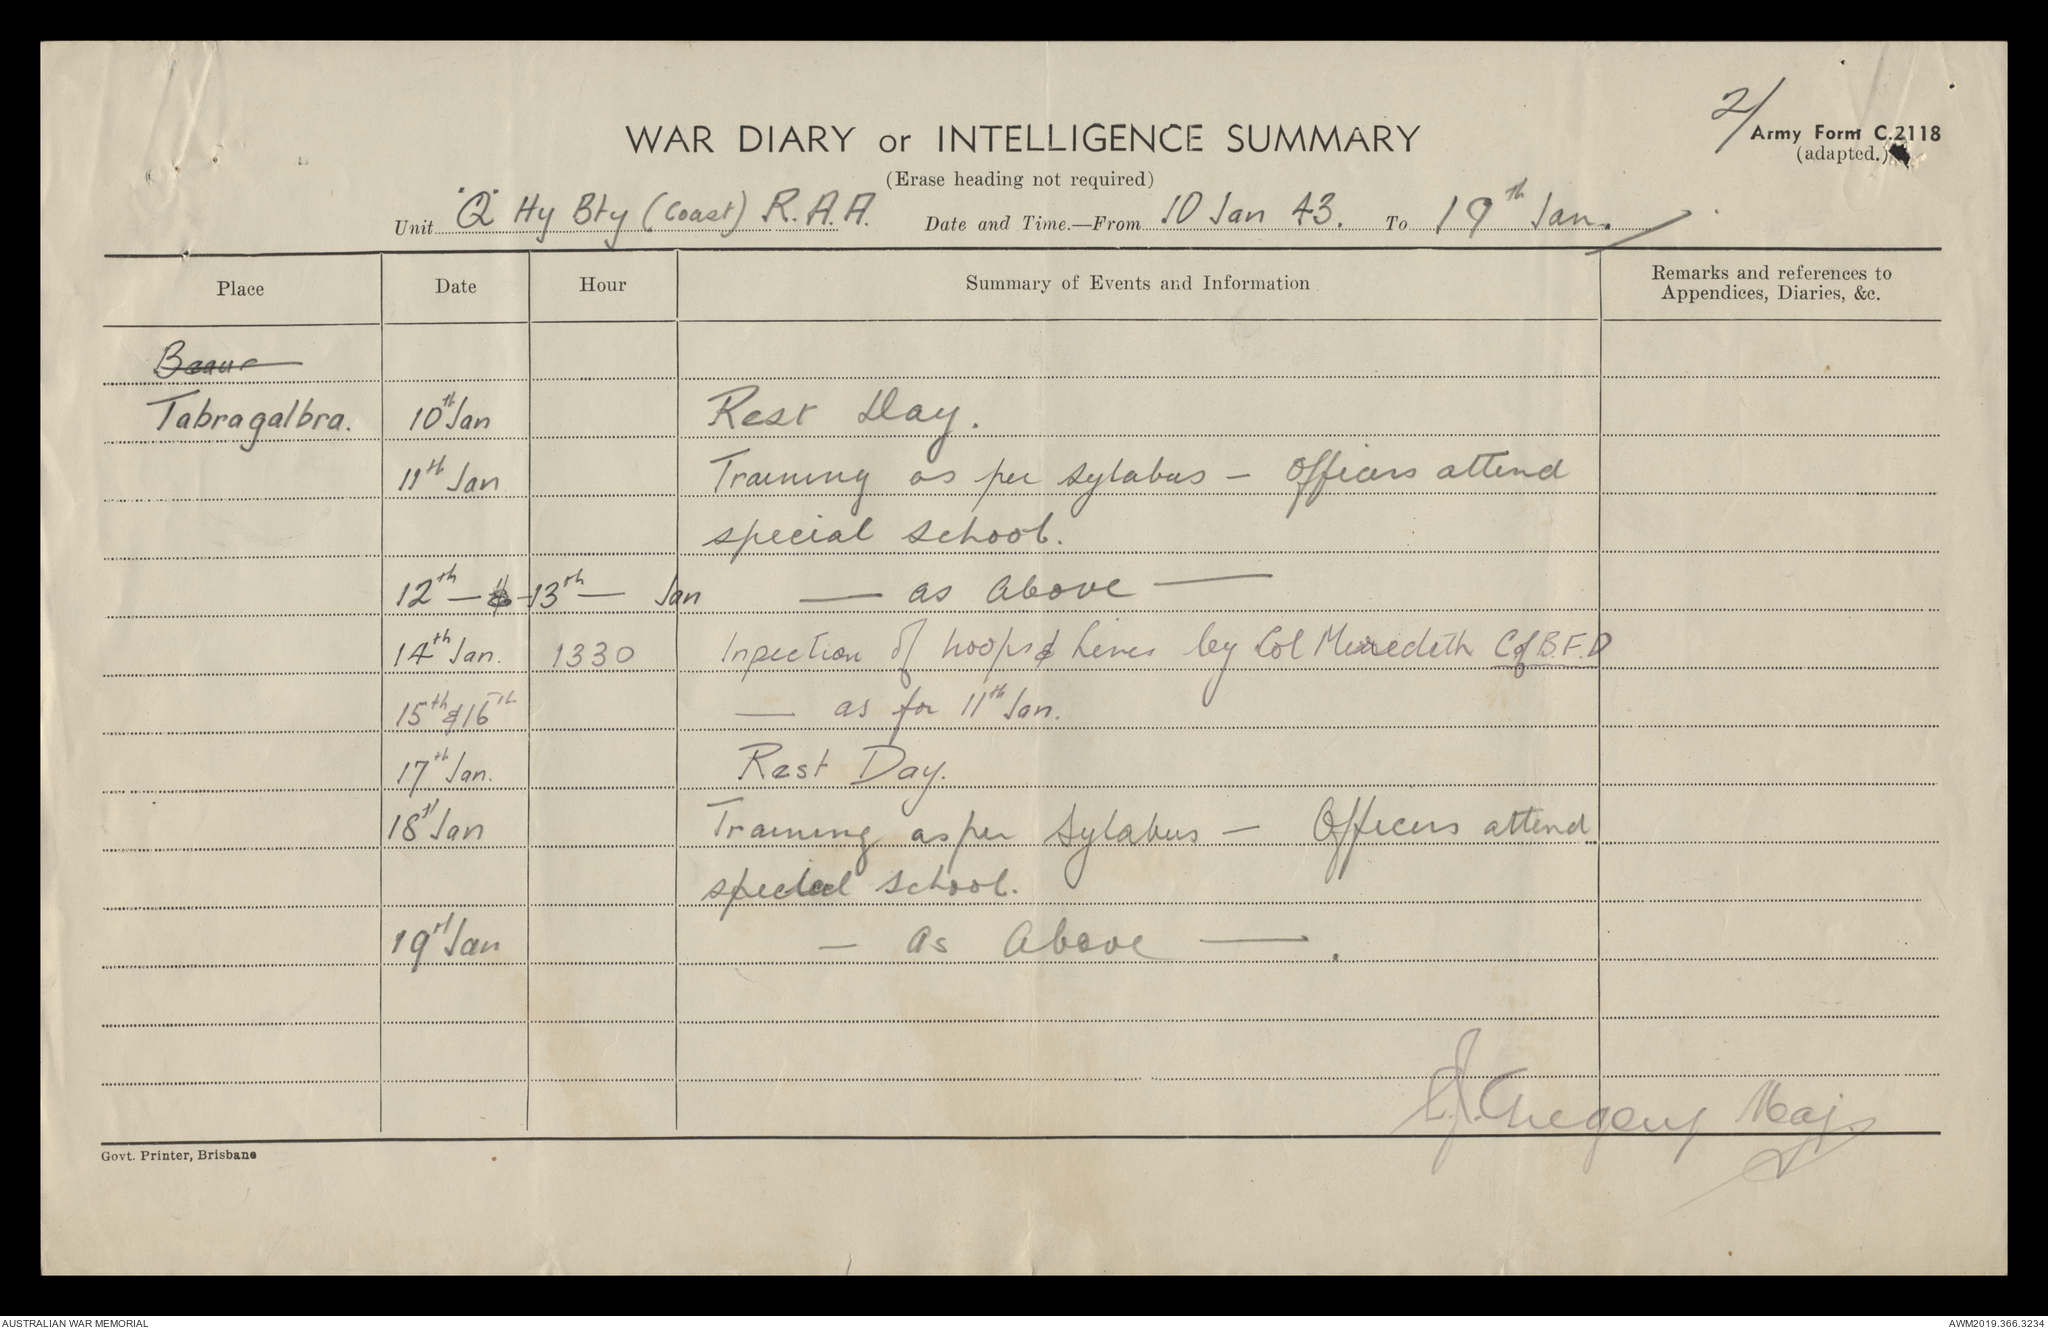 2/
WAR DIARY or INTELLIGENCE SUMMARY
Army Form C.2118
(adapted.)
(Erase heading not required)
Unit "Q" Hy Bty (Coast) R.A.A. Date and Time.—From 10 Jan 43. To 19th Jan.
Place Date Hour Summary of Events and Information Remarks and references to
Appendices, Diaries, &c.
Tabragalbra. 10th Jan Rest Day.
11th Jan Training as per sylabus – Officers attend
special school.
12th — & — 13th — Jan — as above —
14th Jan. 1330 Inpection of troops & Lines by Col Meredith C of B.F.D
15th & 16th — as for 11th Jan.
17th Jan. Rest Day.
18th Jan Training as per Sylabus – Officers attend
special school.
19th Jan — As Above — .
Gregory Maj.
Govt. Printer, Brisbane
AUSTRALIAN WAR MEMORIAL AWM2019.366.3234